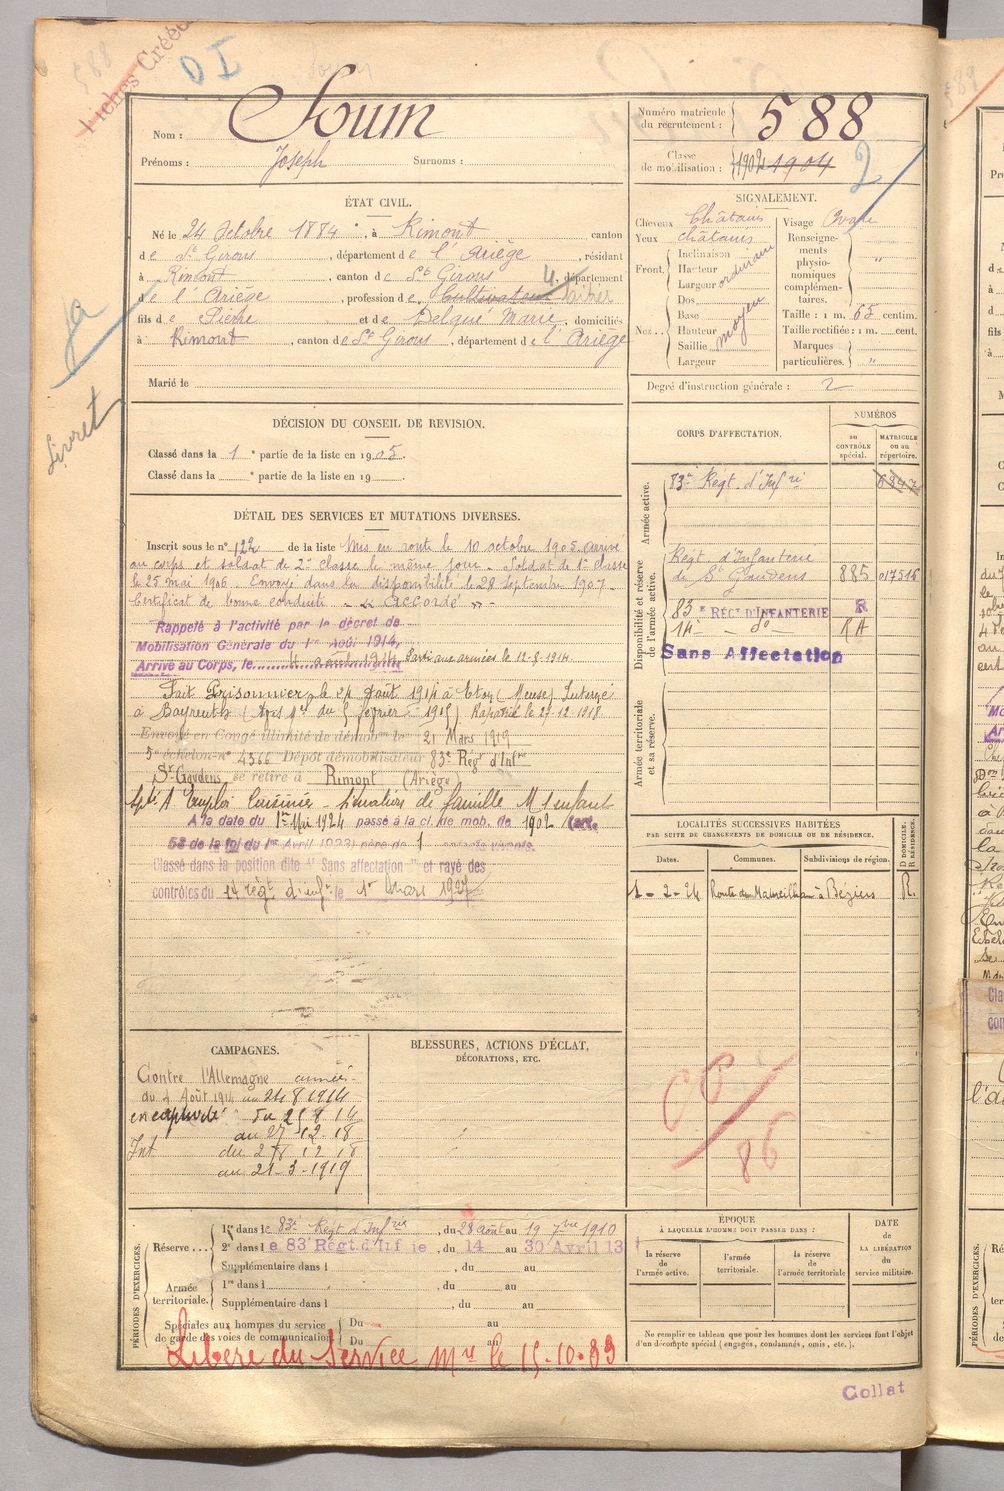 588
Fiches Créée
DI
Nom : Soum
Prénoms : Joseph Surnoms :
Numéro matricule du recrutement : 588
Classe de mobilisation : 1902 1904
2
ÉTAT CIVIL.
Né le 24 Octobre 1884, à Rimont canton
de St Girons, département de l'Ariège, résidant
à Rimont, canton de St Girons, département
de l'Ariège, profession de Cultivateur
fils de Pierre et de Delqué Marie, domiciliés
à Rimont, canton de St Girons, département de l'Ariège
Marié le
SIGNALEMENT.
Cheveux Châtains Visage Ovale
Yeux châtains
Front. Inclinaison Hauteur Largeur ordinaire
Nez. Dos Base Hauteur Saillie Largeur moyen
Renseignements physionomiques complémentaires. "
Taille : 1 m. 65 centim.
Taille rectifiée : 1 m. cent.
Marques particulières. "
Degré d'instruction générale : 2
Livret
DÉCISION DU CONSEIL DE REVISION.
Classé dans la 1e partie de la liste en 1905.
Classé dans la e partie de la liste en 19
CORPS D'AFFECTATION.
NUMÉROS
au CONTRÔLE spécial.
MATRICULE ou au répertoire.
Armée active.
83e Régt. d'Infrie
Disponibilité et réserve de l'armée active.
Régt. d'Infanterie
de St Gaudens 885 017515
83 E RÉGT D'INFANTERIE R
14 - do - RA
Sans Affectation
Armée territoriale et sa réserve.
DÉTAIL DES SERVICES ET MUTATIONS DIVERSES.
Inscrit sous le no 122 de la liste Mis en route le 10 octobre 1905. arrivé
au corps et soldat de 2e classe le même jour. Soldat de 1e classe
le 25 mai 1906. Envoyé dans la disponibilité le 28 Septembre 1907.
Certificat de bonne conduite - "Accordé" -
Rappelé à l'activité par le décret de
Mobilisation Générale du 1er Août 1914,
Arrivé au Corps, le 4 août 1914 Parti aux armées le 12-8-1914.
Fait Prisonnier le 24 Août 1914 à Eton (Meuse) Interné
à Bayreuth (Avis du 5 février 1915) Rapatrié le 27-12-1918
Envoyé en Congé illimité de démob le 21 Mars 1919
5e échelon no 4366 Dépôt démobilisateur 83e Régt d'Inf
St Gaudens se retire à Rimont (Ariège)
Situation de famille M 1 enfant
A la date du 1er Mai 1924 passé à la cl. de mob. de 1902 (arte
58 de la loi du 1er Avril 1923) père de 1 enfants vivants.
Classé dans la position dite "Sans affectation" et rayé des
contrôles du 14 régt d'inf le 1er Mars 1927
LOCALITÉS SUCCESSIVES HABITÉES
PAR SUITE DE CHANGEMENTS DE DOMICILE OU DE RÉSIDENCE.
Dates. Communes. Subdivisions de région. D DOMICILE. R RÉSIDENCE.
1-2-24 Route de Maureilhan à Béziers R.
CAMPAGNES.
Contre l'Allemagne
du 4 Août 1914 au 24 8 1914
en captivité du 25 8 14
au 27 12-18
Int du 28 12 18
au 21-3-1919
BLESSURES, ACTIONS D'ÉCLAT,
DÉCORATIONS, ETC.
86
PÉRIODES D'EXERCICES.
Réserve.... 1re dans le 83e Régt d'Infrie, du 28 août au 19 7bre 1910
2e dans le 83 Régt.d'Inf ie, du 14 au 30 Avril 13
Supplémentaire dans l , du au
Armée territoriale. 1re dans l , du au
Supplémentaire dans l , du au
Spéciales aux hommes du service de garde des voies de communication. Du au
Du au
Libéré du Service Mre le 15-10-33
ÉPOQUE
À LAQUELLE L'HOMME DOIT PASSER DANS :
la réserve de l'armée active.
l'armée territoriale.
la réserve de l'armée territoriale
DATE DE LA LIBÉRATION DU service militaire.
Ne remplir ce tableau que pour les hommes dont les services font l'objet
d'un décompte spécial (engagés, condamnés, omis, etc.).
Collat